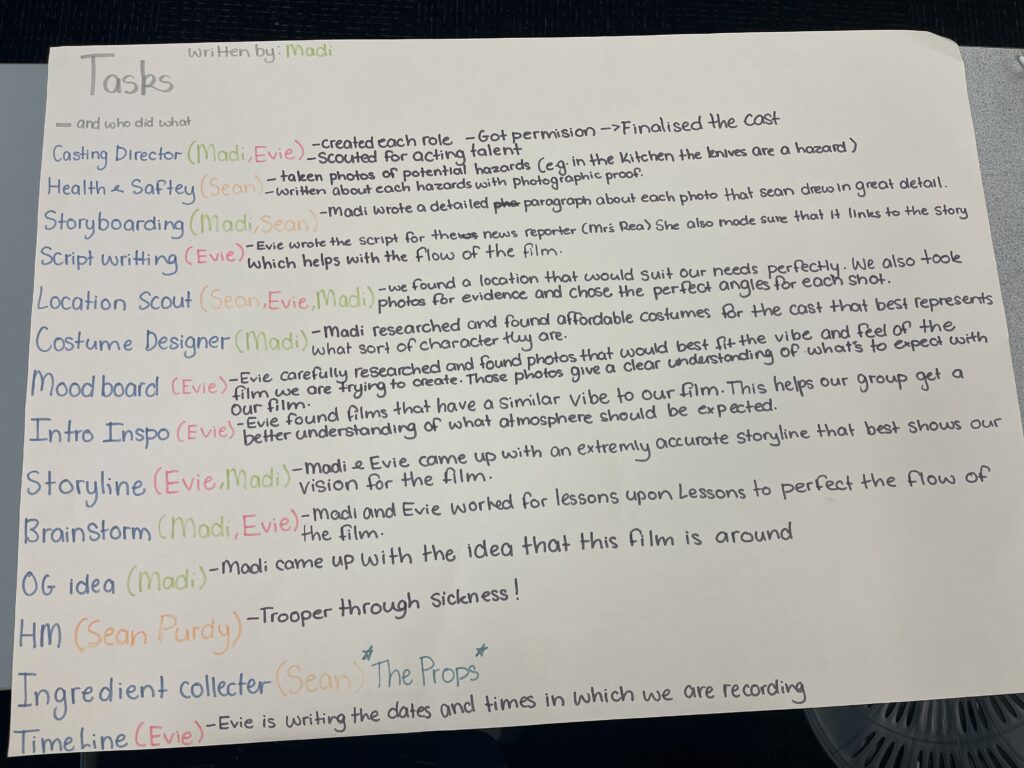 written by: Madi
Tasks
— and who did what
Casting Director (Madi, Evie) -created each role -Got permision -> Finalised the cast
-Scouted for acting talent
Health & Saftey (Sean) - taken photos of potential hazards (e.g. in the kitchen the knives are a hazard)
-written about each hazards with photographic proof.
Storyboarding (Madi, Sean) -Madi wrote a detailed paragraph about each photo that sean drew in great detail.
Script writting (Evie) -Evie wrote the script for the news reporter (Mrs Rea) She also made sure that it links to the story
which helps with the flow of the film.
Location Scout (Sean, Evie, Madi) -we found a location that would suit our needs perfectly. We also took
photos for evidence and chose the perfect angles for each shot.
Costume Designer (Madi) -Madi researched and found affordable costumes for the cast that best represents
what sort of character they are.
Mood board (Evie) -Evie carefully researched and found photos that would best fit the vibe and feel of the
film we are trying to create. Those photos give a clear understanding of what's to expect with
our film.
Intro Inspo (Evie) -Evie found films that have a similar vibe to our film. This helps our group get a
better understanding of what atmosphere should be expected.
Storyline (Evie, Madi) -Madi & Evie came up with an extremly accurate storyline that best shows our
vision for the film.
Brainstorm (Madi, Evie) -Madi and Evie worked for lessons upon Lessons to perfect the flow of
the film.
OG idea (Madi) -Madi came up with the idea that this film is around
HM (Sean Purdy) -Trooper through sickness!
Ingredient collecter (Sean) *The Props*
TimeLine (Evie) -Evie is writing the dates and times in which we are recording